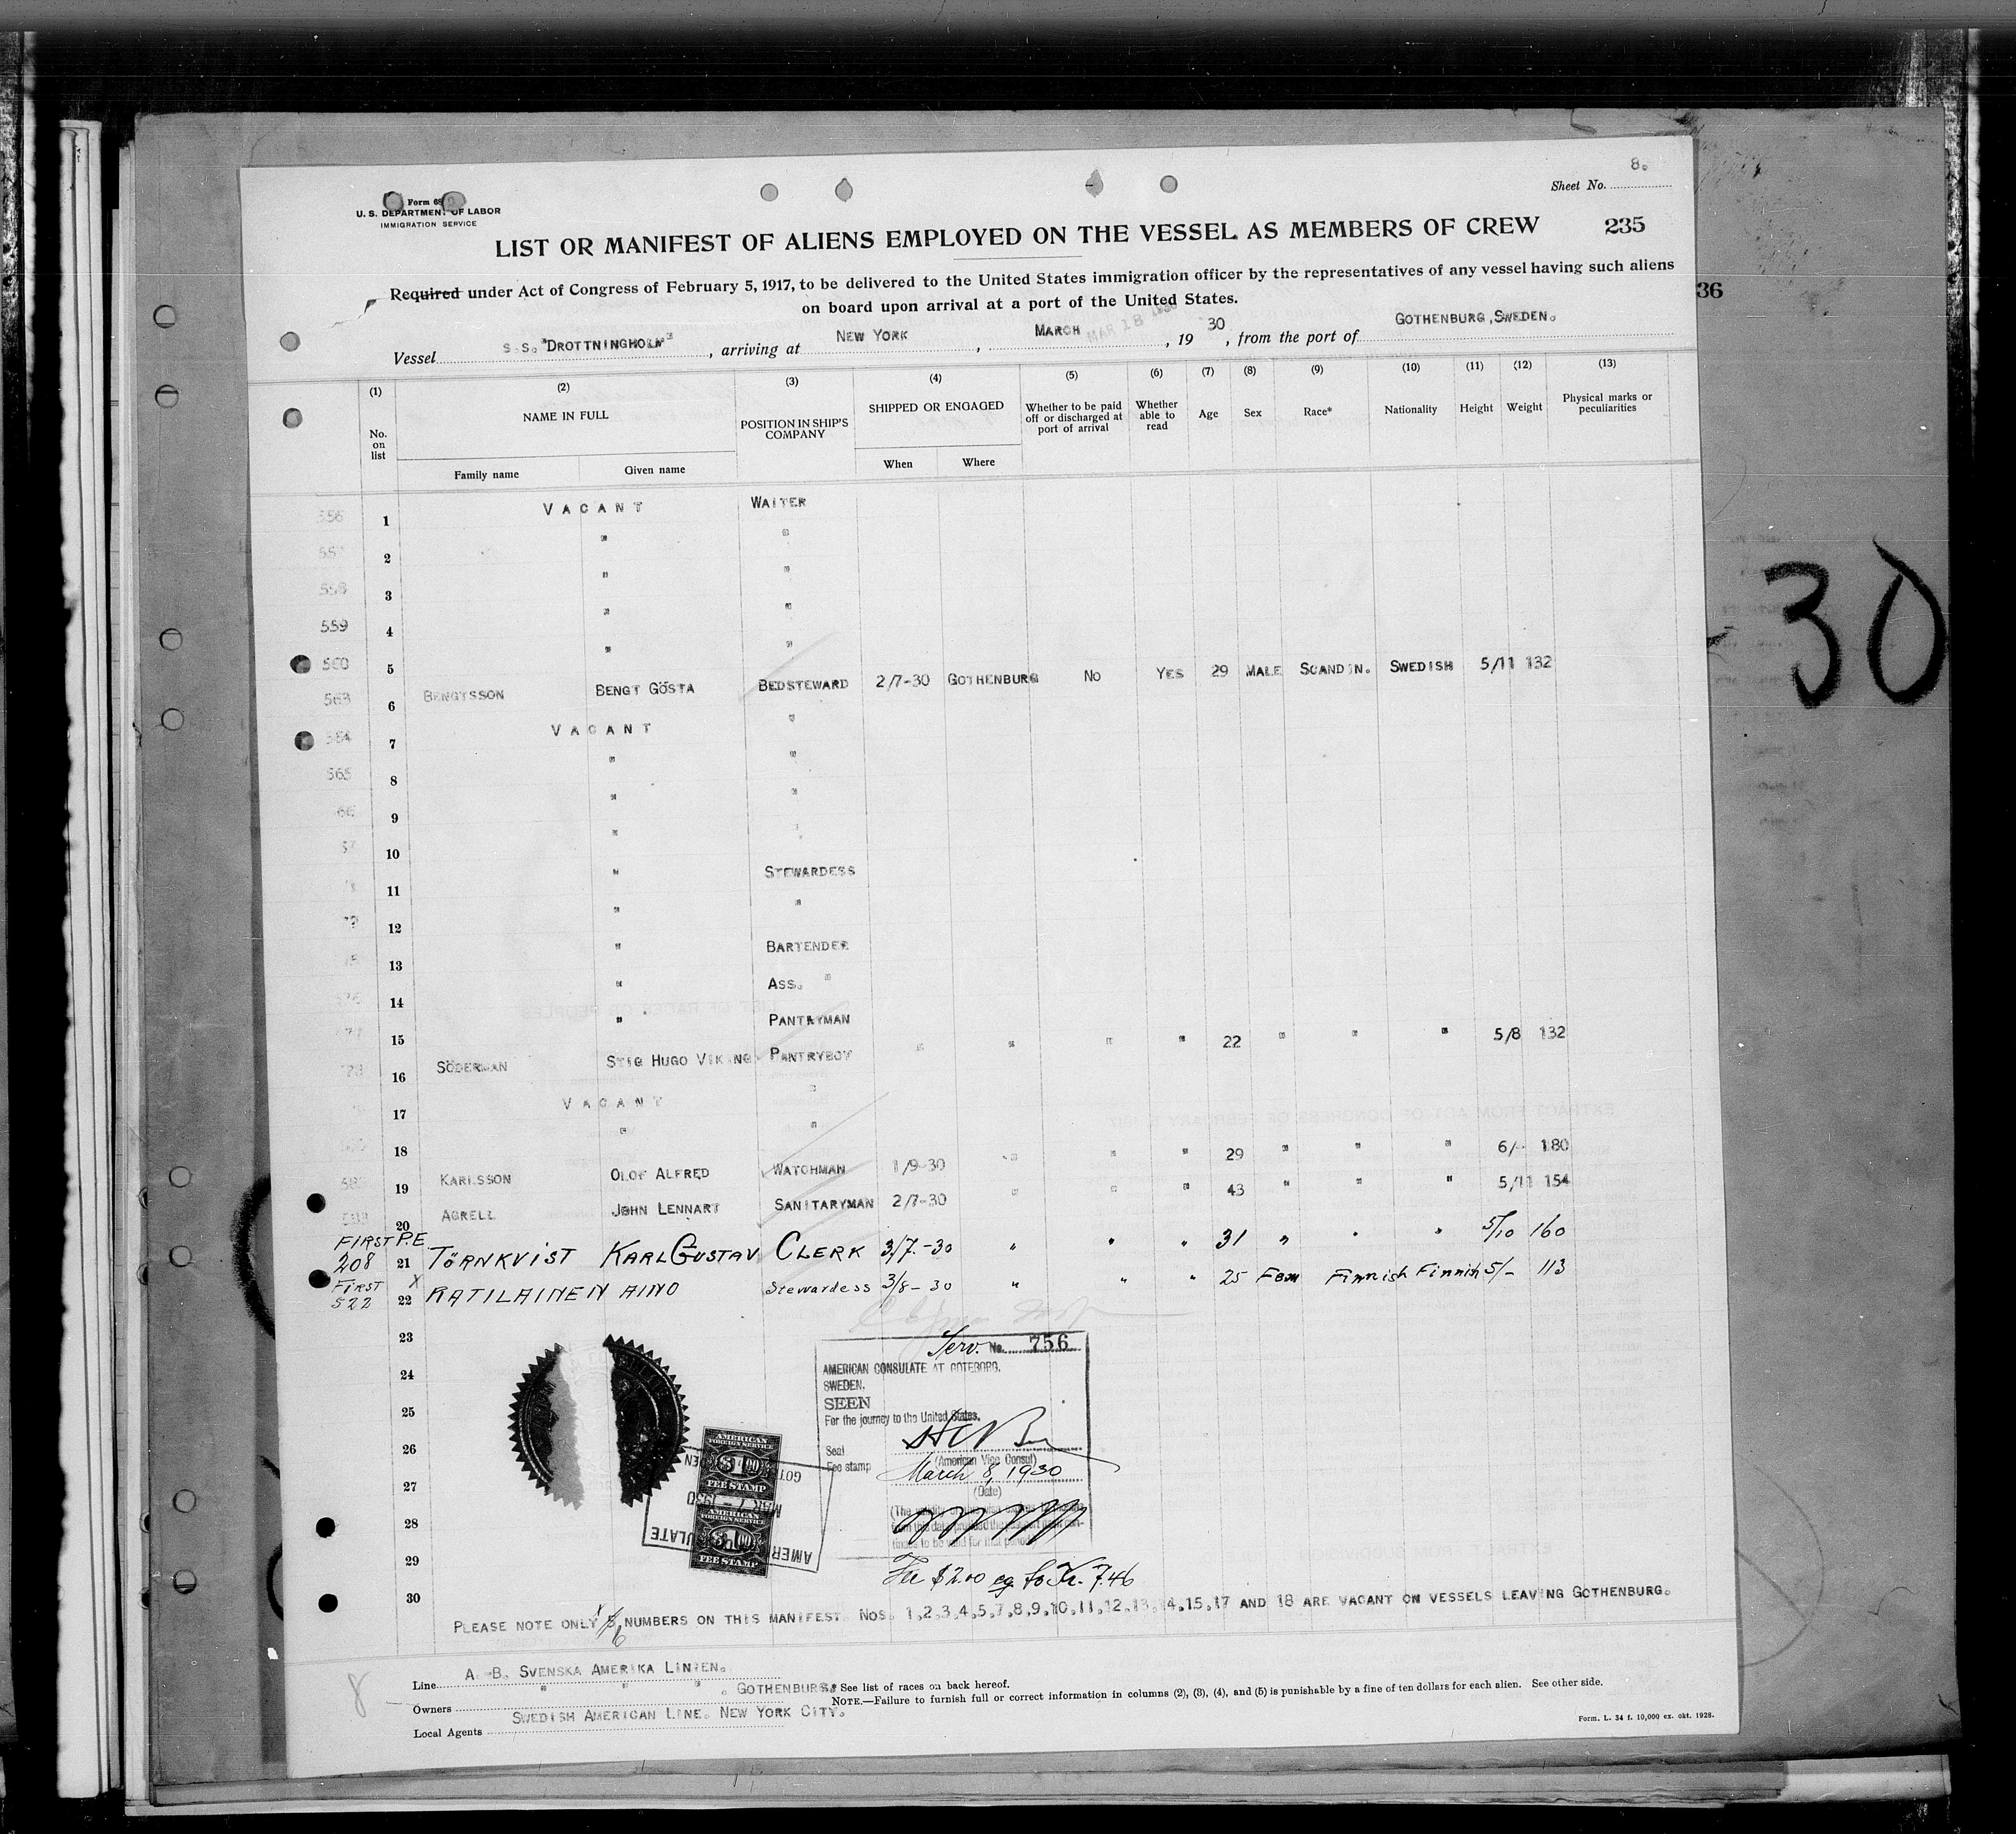 8.
Sheet No.
Form 68
U. S. DEPARTMENT OF LABOR
IMMIGRATION SERVICE
LIST OR MANIFEST OF ALIENS EMPLOYED ON THE VESSEL AS MEMBERS OF CREW 235
Required under Act of Congress of February 5, 1917, to be delivered to the United States immigration officer by the representatives of any vessel having such aliens
on board upon arrival at a port of the United States.
36
Vessel S.S. "DROTTNINGHOLM", arriving at NEW YORK, MARCH MAR 18 1930, 1930, from the port of GOTHENBURG, SWEDEN.
(1) (2) (3) (4) (5) (6) (7) (8) (9) (10) (11) (12) (13)
No. on list NAME IN FULL POSITION IN SHIP'S COMPANY SHIPPED OR ENGAGED Whether to be paid off or discharged at port of arrival Whether able to read Age Sex Race* Nationality Height Weight Physical marks or peculiarities
Family name Given name When Where
556 1 VACANT WAITER
557 2 " "
558 3 " "
559 4 " "
560 5 " "
563 6 BENGTSSON BENGT GÖSTA BEDSTEWARD 2/7-30 GOTHENBURG NO YES 29 MALE SCANDIN. SWEDISH 5/11 132
564 7 VACANT "
565 8 " "
66 9 " "
10 " "
11 " STEWARDESS
12 " "
13 " BARTENDER
14 " ASS. "
15 " PANTRYMAN
16 SÖDERMAN STIG HUGO VIKING PANTRYBOY " " " " 22 " " " 5/8 132
17 VACANT "
18 " "
19 KARLSSON OLOF ALFRED WATCHMAN 1/9-30 " " " 29 " " " 6/- 180
20 AGRELL JOHN LENNART SANITARYMAN 2/7-30 " " " 43 " " " 5/11 154
FIRST P.E
208 21 TÖRNKVIST KARL GUSTAV CLERK 3/7-30 " " " 31 " " " 5/10 160
FIRST X
522 22 RATILAINEN AINO Stewardess 3/8-30 " " " 25 Fem Finnish Finnish 5/- 113
23
24
25
26
27
28
29
30
30
Serv. No. 756
AMERICAN CONSULATE AT GOTEBORG,
SWEDEN.
SEEN
For the journey to the United States.
Seal
(American Vice Consul)
Fee stamp March 8, 1930
(Date)
AMERICAN
FOREIGN SERVICE
$1.00
FEE STAMP
AMERICAN
FOREIGN SERVICE
$1.00
FEE STAMP
MAR 7 - 1930
Fee $2.00 eq. to Kr. 7.46
PLEASE NOTE ONLY 6 NUMBERS ON THIS MANIFEST. NOS. 1,2,3,4,5,7,8,9,10,11,12,13,14,15,17 AND 18 ARE VACANT ON VESSELS LEAVING GOTHENBURG.
8
Line A.-B. SVENSKA AMERIKA LINIEN.
Owners " " ". GOTHENBURG.
Local Agents SWEDISH AMERICAN LINE. NEW YORK CITY.
* See list of races on back hereof.
NOTE.—Failure to furnish full or correct information in columns (2), (3), (4), and (5) is punishable by a fine of ten dollars for each alien. See other side.
Form. L. 34 f. 10,000 ex. okt. 1928.